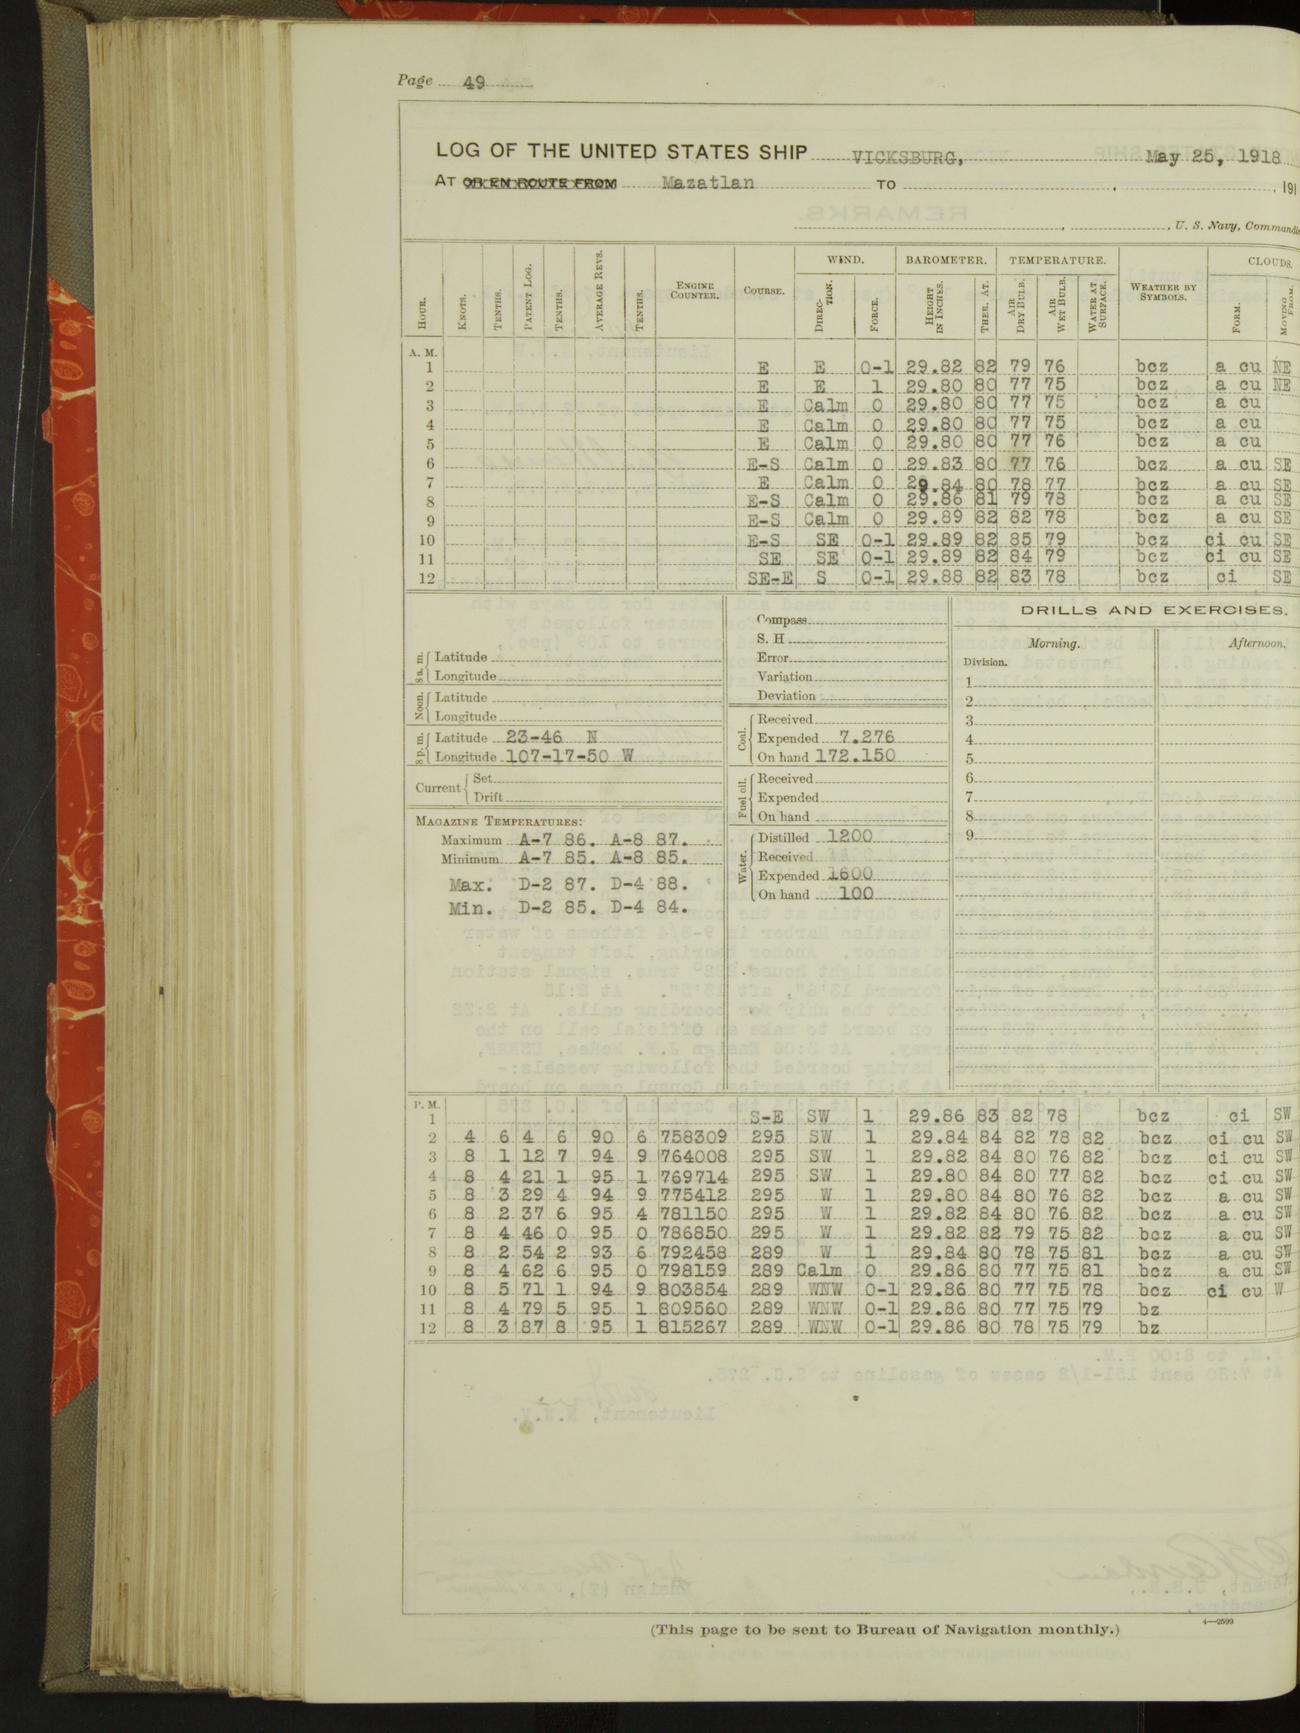 Page 49
LOG OF THE UNITED STATES SHIP VICKSBURG, May 25, 1918
AT OR EN ROUTE FROM Mazatlan TO , 191
, , U. S. Navy, Commandi
WIND. BAROMETER. TEMPERATURE. CLOUDS.
HOUR. KNOTS. TENTHS. PATENT LOG. TENTHS. AVERAGE REVS. TENTHS. ENGINE COUNTER. COURSE. DIRECTION. FORCE. HEIGHT IN INCHES. THER. AT. AIR DRY BULB. AIR WET BULB. WATER AT SURFACE. WEATHER BY SYMBOLS. FORM. MOVING FROM.
A. M.
1 E E 0-1 29.82 82 79 76 bcz a cu NE
2 E E 1 29.80 80 77 75 bcz a cu NE
3 E Calm 0 29.80 80 77 75 bcz a cu
4 E Calm 0 29.80 80 77 75 bcz a cu
5 E Calm 0 29.80 80 77 76 bcz a cu
6 E-S Calm 0 29.83 80 77 76 bcz a cu SE
7 E Calm 0 29.84 80 78 77 bcz a cu SE
8 E-S Calm 0 29.86 81 79 78 bcz a cu SE
9 E-S Calm 0 29.89 82 82 78 bcz a cu SE
10 E-S SE 0-1 29.89 82 85 79 bcz ci cu SE
11 SE SE 0-1 29.89 82 84 79 bcz ci cu SE
12 SE-E S 0-1 29.88 82 83 78 bcz ci SE
8 a. m. Latitude
Longitude
Noon. Latitude
Longitude
8 p. m. Latitude 23-46 N
Longitude 107-17-50 W
Current Set
Drift
MAGAZINE TEMPERATURES:
Maximum A-7 86. A-8 87.
Minimum A-7 85. A-8 85.
Max. D-2 87. D-4 88.
Min. D-2 85. D-4 84.
Compass
S. H
Error
Variation
Deviation
Coal. Received
Expended 7.276
On hand 172.150
Fuel oil. Received
Expended
On hand
Water. Distilled 1200
Received
Expended 1600
On hand 100
DRILLS AND EXERCISES.
Morning. Afternoon.
Division.
1
2
3
4
5
6
7
8
9
P. M.
1 S-E SW 1 29.86 83 82 78 bcz ci SW
2 4 6 4 6 90 6 758309 295 SW 1 29.84 84 82 78 82 bcz ci cu SW
3 8 1 12 7 94 9 764008 295 SW 1 29.82 84 80 76 82 bcz ci cu SW
4 8 4 21 1 95 1 769714 295 SW 1 29.80 84 80 77 82 bcz ci cu SW
5 8 3 29 4 94 9 775412 295 W 1 29.80 84 80 76 82 bcz a cu SW
6 8 2 37 6 95 4 781150 295 W 1 29.82 84 80 76 82 bcz a cu SW
7 8 4 46 0 95 0 786850 295 W 1 29.82 82 79 75 82 bcz a cu SW
8 8 2 54 2 93 6 792458 289 W 1 29.84 80 78 75 81 bcz a cu SW
9 8 4 62 6 95 0 798159 289 Calm 0 29.86 80 77 75 81 bcz a cu SW
10 8 5 71 1 94 9 803854 289 WNW 0-1 29.86 80 77 75 78 bcz ci cu W
11 8 4 79 5 95 1 809560 289 WNW 0-1 29.86 80 77 75 79 bz
12 8 3 87 8 95 1 815267 289 WNW 0-1 29.86 80 78 75 79 bz
(This page to be sent to Bureau of Navigation monthly.)
4—2599